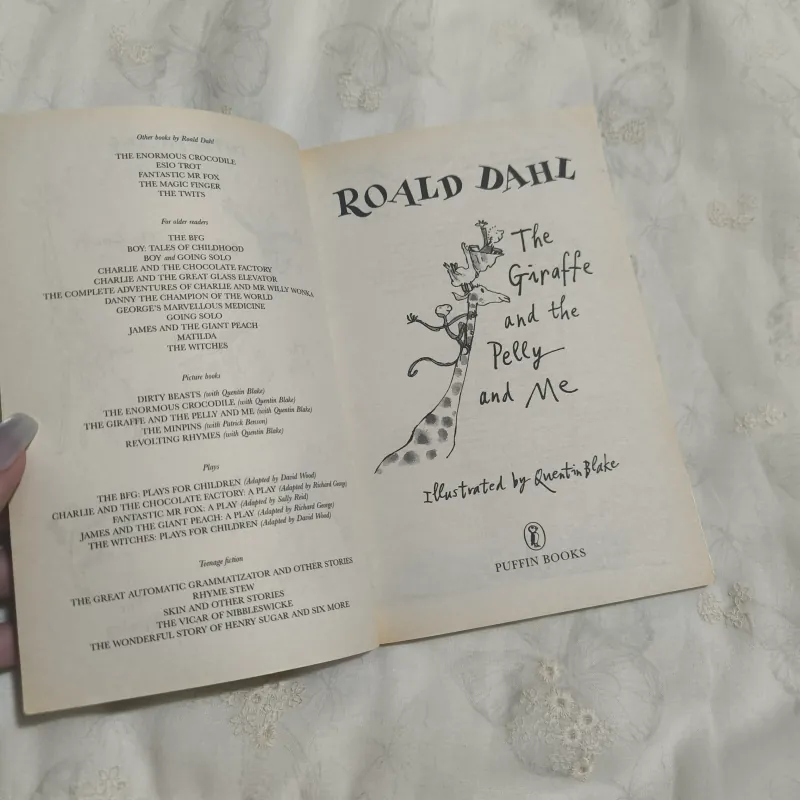 Other books by Roald Dahl
THE ENORMOUS CROCODILE
ESIO TROT
FANTASTIC MR FOX
THE MAGIC FINGER
THE TWITS
For older readers
THE BFG
BOY: TALES OF CHILDHOOD
BOY and GOING SOLO
CHARLIE AND THE CHOCOLATE FACTORY
CHARLIE AND THE GREAT GLASS ELEVATOR
THE COMPLETE ADVENTURES OF CHARLIE AND MR WILLY WONKA
DANNY THE CHAMPION OF THE WORLD
GEORGE'S MARVELLOUS MEDICINE
GOING SOLO
JAMES AND THE GIANT PEACH
MATILDA
THE WITCHES
Picture books
DIRTY BEASTS (with Quentin Blake)
THE ENORMOUS CROCODILE (with Quentin Blake)
THE GIRAFFE AND THE PELLY AND ME (with Quentin Blake)
THE MINPINS (with Patrick Benson)
REVOLTING RHYMES (with Quentin Blake)
Plays
THE BFG: PLAYS FOR CHILDREN (Adapted by David Wood)
CHARLIE AND THE CHOCOLATE FACTORY: A PLAY (Adapted by Richard George)
FANTASTIC MR FOX: A PLAY (Adapted by Sally Reid)
JAMES AND THE GIANT PEACH: A PLAY (Adapted by Richard George)
THE WITCHES: PLAYS FOR CHILDREN (Adapted by David Wood)
Teenage fiction
THE GREAT AUTOMATIC GRAMMATIZATOR AND OTHER STORIES
RHYME STEW
SKIN AND OTHER STORIES
THE VICAR OF NIBBLESWICKE
THE WONDERFUL STORY OF HENRY SUGAR AND SIX MORE
ROALD DAHL
The
Giraffe
and the
Pelly
and Me
Illustrated by Quentin Blake
PUFFIN BOOKS